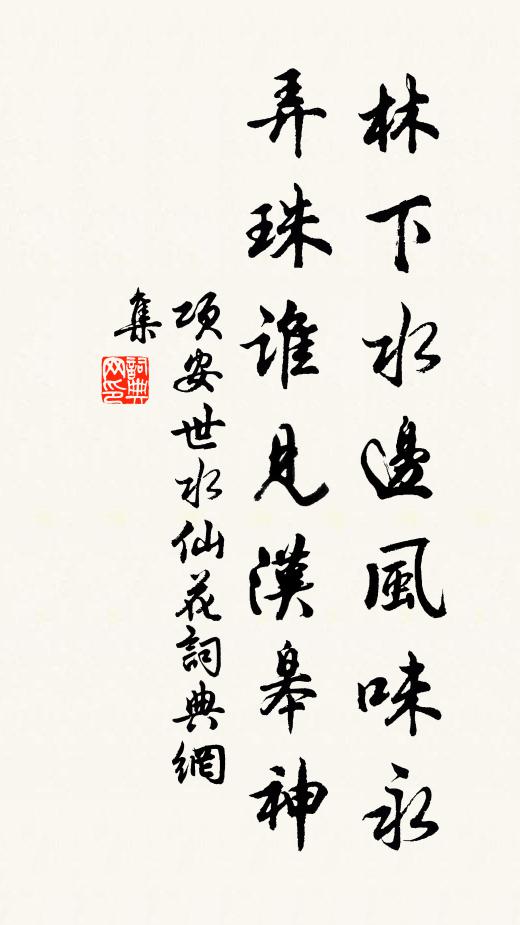 林下水邊風味永
弄珠誰見漢皋神
項安世水仙花詞典網
集
詞典
网印